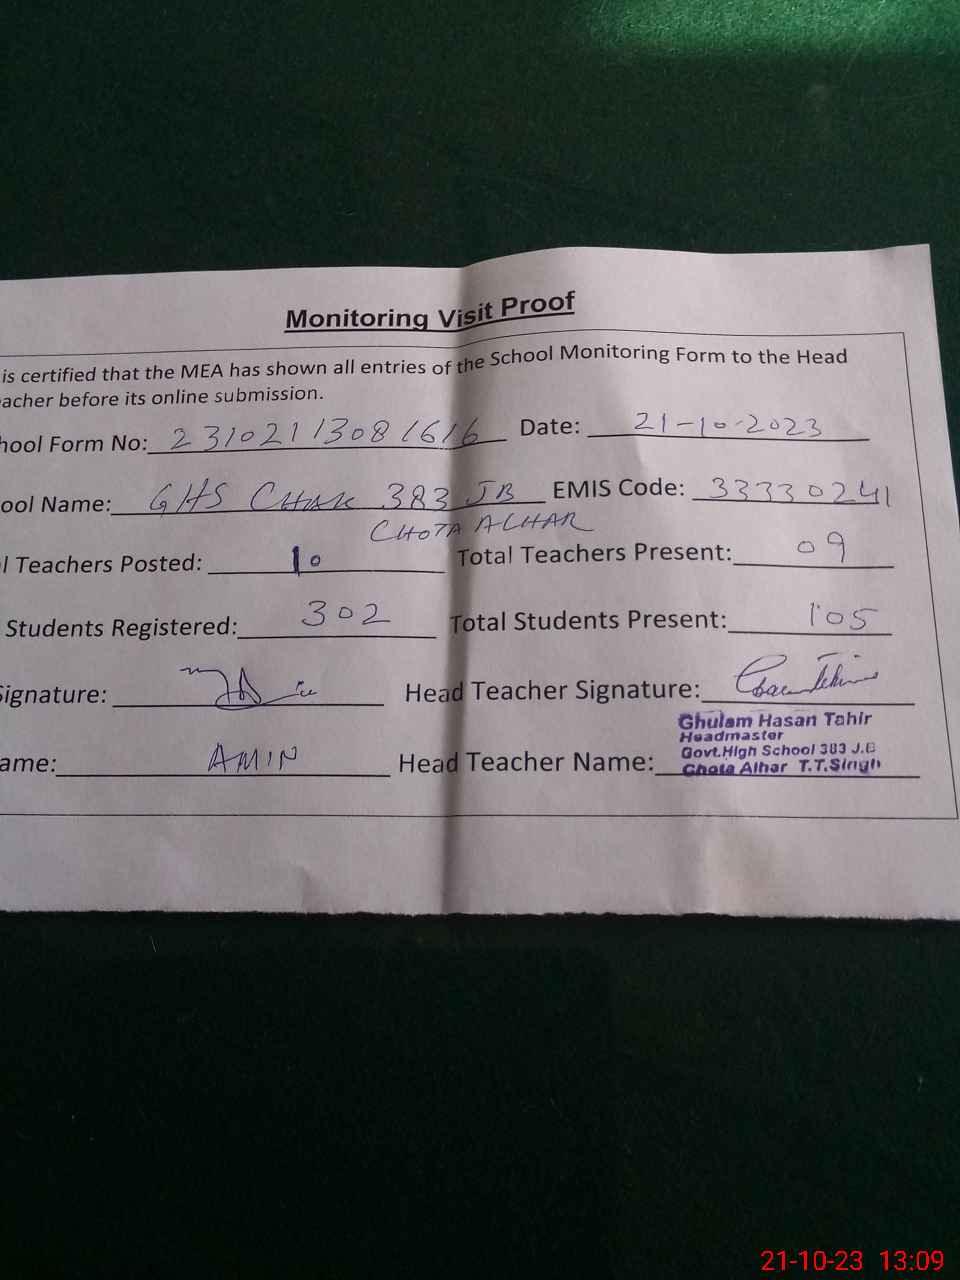 Monitoring Visit Proof
is certified that the MEA has shown all entries of the School Monitoring Form to the Head
acher before its online submission.
hool Form No: 2310211308 1616 Date: 21-10-2023
ool Name: GHS CHAK 383 JB EMIS Code: 33330241
CHOTA ALHAR
l Teachers Posted: 10 Total Teachers Present: 09
Students Registered: 302 Total Students Present: 105
Signature: Head Teacher Signature:
ame: AMIN Head Teacher Name:
Ghulam Hasan Tahir
Headmaster
Govt.High School 383 J.B
Chota Alhar T.T.Singh
21-10-23 13:09